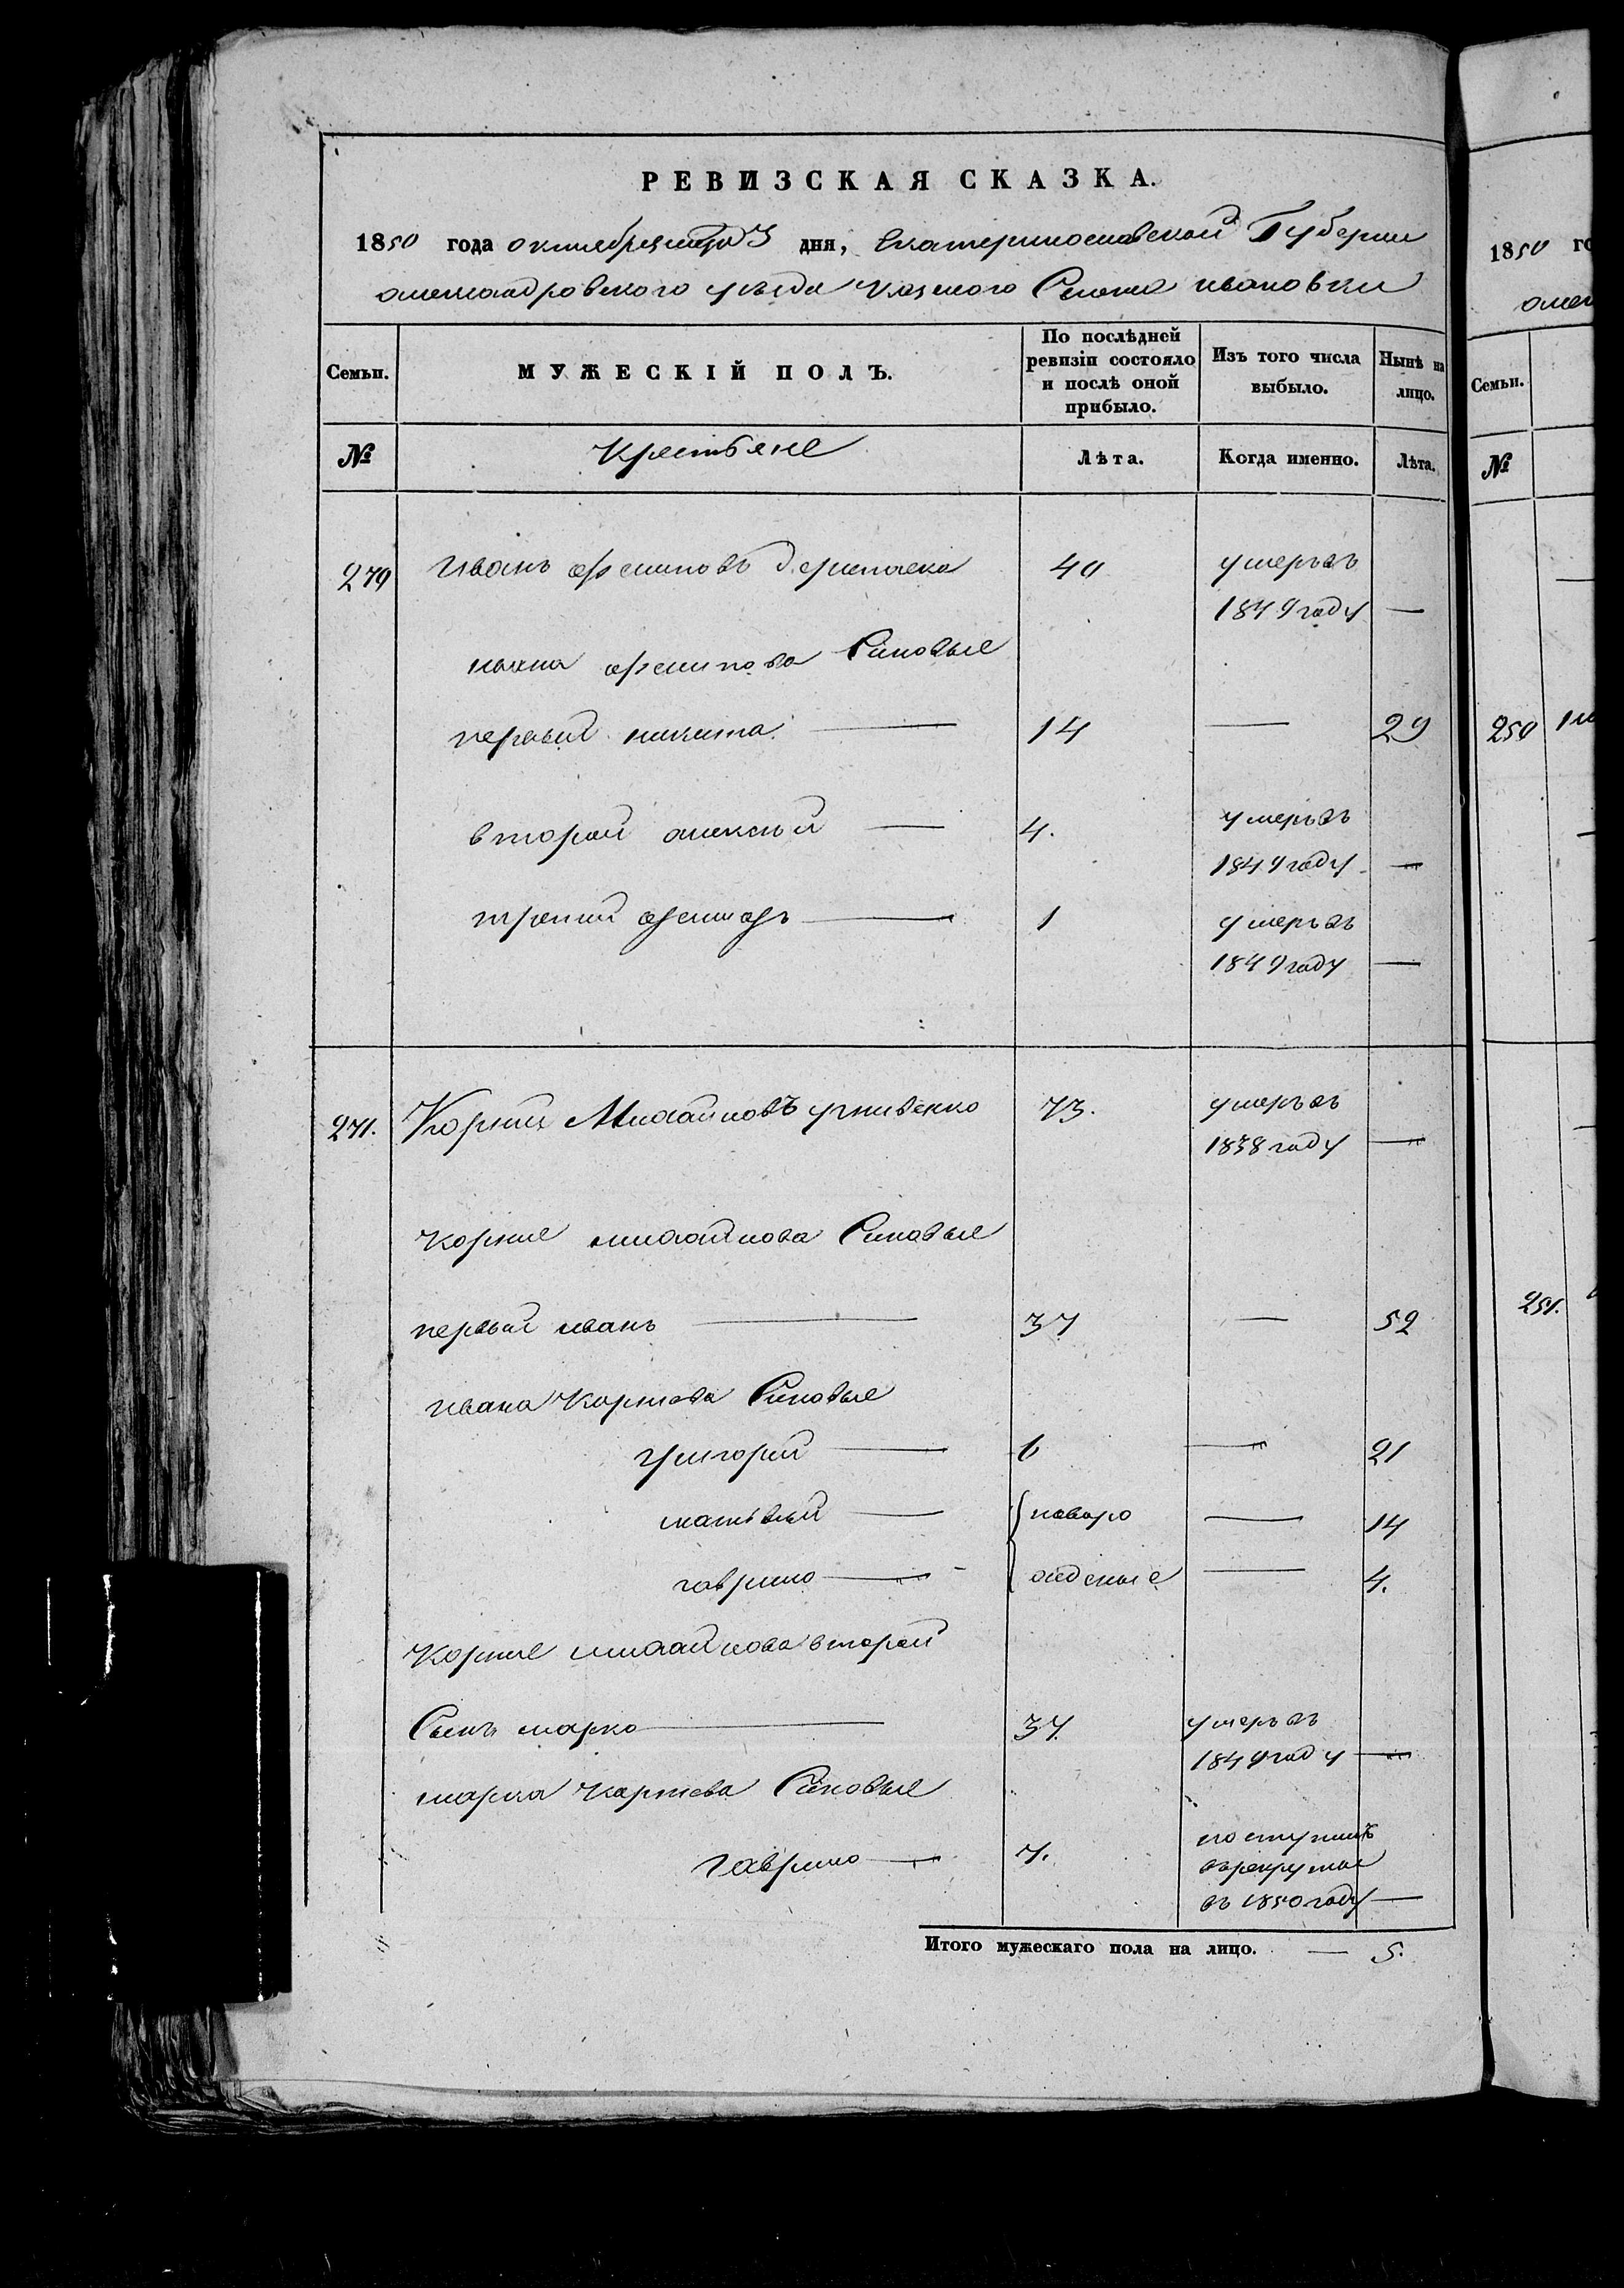 РЕВИЗСКАЯ СКАЗКА.
1850 года октября 3 дня, Екатеринославской Губернии
александровского уезда Села ивановки
Семьи. МУЖЕСКІЙ ПОЛЪ. По послѣдней ревизіи состояло и послѣ оной прибыло. Изъ того числа выбыло. Нынѣ на лицо.
№ Крестьяне Лѣта. Когда именно. Лѣта.
Иванъ 40 умеръ въ
1849 году —
ивана Синовье
первый никита — 14 — 29
второй алексѣй — 4. умеръ въ
1849 году —
третий — 1 умеръ въ
1849 году —
271. Корний Михайловъ 73. умеръ въ
1838 году —
Корние михайлова Синовье
первый иванъ — 37 — 52
ивана Корнева Синовье
григорий — 6 — 21
матвѣй — новоро — 14
гаврило — жденые — 4.
Корние михайлова второй
Сынъ марко — 37. умеръ въ
1849 году —
марка Корнева Синовье
гаврило — 7. поступилъ
въ рекруты
въ 1850 году —
Итого мужескаго пола на лицо. — 5.
1850 го
Семьи.
№
250
251.